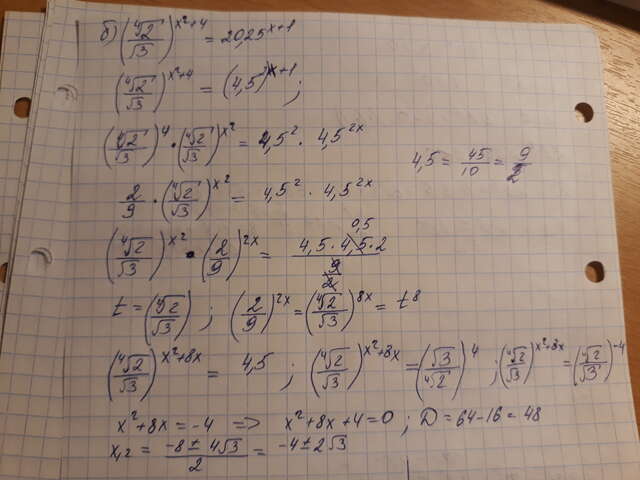 б) (⁴√2/√3)^(x²+4) = 20,25^(x+1)
(⁴√2/√3)^(x²+4) = (4,5²)^(x+1);
(⁴√2/√3)⁴ · (⁴√2/√3)^(x²) = 4,5² · 4,5^(2x)    4,5 = 45/10 = 9/2
2/9 · (⁴√2/√3)^(x²) = 4,5² · 4,5^(2x)
(⁴√2/√3)^(x²) · (2/9)^(2x) = 4,5 · 4,5 · 9/2
t = (⁴√2/√3); (2/9)^(2x) = (⁴√2/√3)^(8x) = t⁸
(⁴√2/√3)^(x²+8x) = 4,5; (⁴√2/√3)^(x²+8x) = (√3/⁴√2)⁴; (⁴√2/√3)^(x²+8x) = (⁴√2/√3)^(-4)
x²+8x = -4 => x²+8x+4=0; D = 64-16 = 48
x₁,₂ = (-8±4√3)/2 = -4±2√3